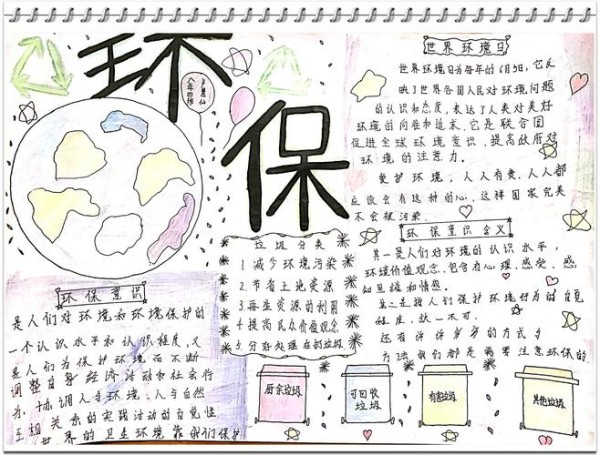 环
保
八年四班
世界环境日
世界环境日为每年的6月5日,它反
映了世界各国人民对环境问题
的认识和态度,表达了人类对美好
环境的向往和追求,它是联合国
促进全球环境意识、提高政府对
环境的注意力。
爱护环境,人人有责,人人都
应该会有这样的心,这样国家完美
不会被污染.
环保意识含义
其一是人们对环境的认识水平,
环境价值观念,包含有心理、感受、感
知思维和情感.
其二是指人们保护环境行为的自觉
程度,缺一不可.
还有许许多多的方式与
方法我们都是需要注意环保的.
垃圾分类
1.减少环境污染
2.节省土地资源
3.再生资源的利用
4.提高民众价值观念
5.分好处理应的垃圾
环保意识
是人们对环境和环境保护的
一个认识水平和认识程度,又
是人们为保护环境而不断
调整自身经济活动和社会行
为,协调人与环境、人与自然
互相关系的实践活动的自觉性
世界的卫生环境靠我们保护
厨余垃圾
可回收
垃圾
有害垃圾
其他垃圾